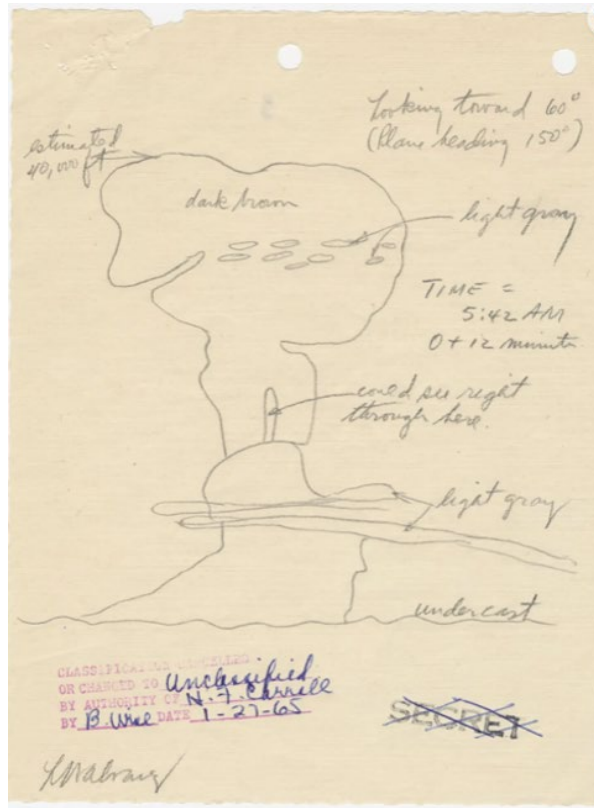 Looking toward 60°
(Plane heading 150°)
estimated
40,000 ft
dark brown
light gray
TIME =
5:42 AM
0 + 12 minute
could see right
through here.
light gray
undercast
CLASSIFICATION CANCELLED
OR CHANGED TO Unclassified
BY AUTHORITY OF N. F. Carroll
BY DATE 1-27-65
SECRET